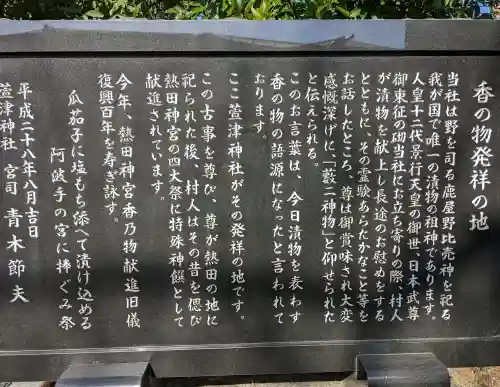 香の物発祥の地
当社は野を司る鹿屋野比売神を祀る
我が国で唯一の漬物の祖神であります。
人皇十二代景行天皇の御世、日本武尊
御東征の砌当社にお立ち寄りの際、村人
が漬物を献上し長途のお慰めをする
とともに、その霊験あらたかなこと等を
お話したところ、尊は御賞味され大変
感慨深げに「藪二神物」と仰せられた
と伝えられる。
このお言葉は、今日漬物を表わす
香の物の語源になったと言われて
おります。
ここ萱津神社がその発祥の地です。
この古事を尊び、尊が熱田の地に
祀られた後、村人はその昔を偲び
熱田神宮の四大祭に特殊神饌として
献進されています。
今年、熱田神宮香乃物献進旧儀
復興百年を寿ぎ詠す。
瓜茄子に塩もち添へて漬け込める
阿波手の宮に捧ぐみ祭
平成二十八年八月吉日
萱津神社 宮司 青木節夫